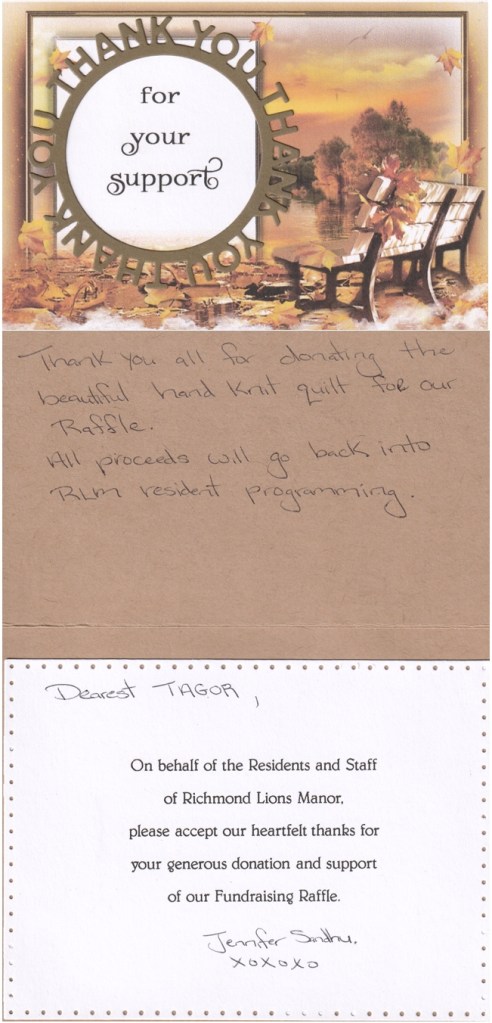 THANK YOU THANK YOU THANK YOU
for
your
support
Thank you all for donating the
beautiful hand knit quilt for our
Raffle.
All proceeds will go back into
RLM resident programming.
Dearest TAGOR,
On behalf of the Residents and Staff
of Richmond Lions Manor,
please accept our heartfelt thanks for
your generous donation and support
of our Fundraising Raffle.
Jennifer Sandhu.
xoxoxo